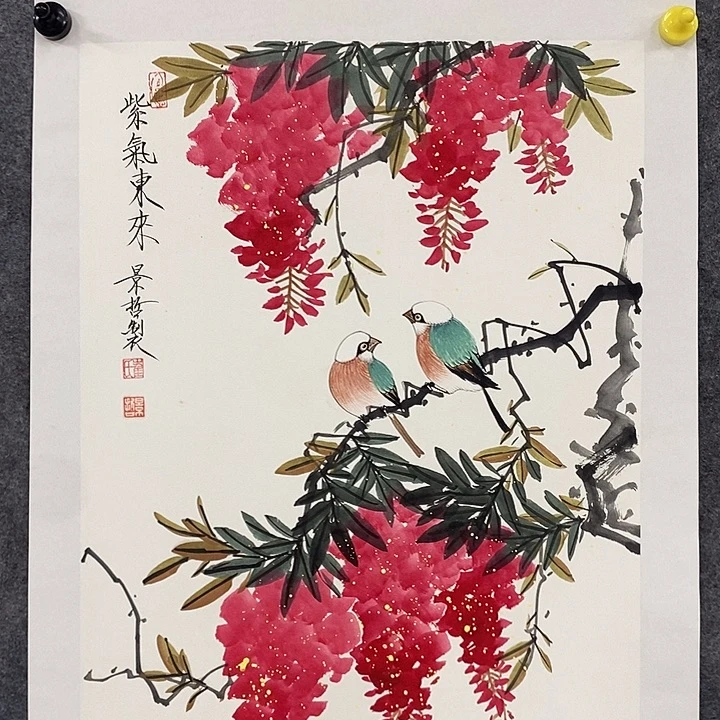 紫氣東來
景哲製